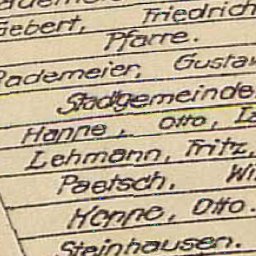 Gebert, Friedrich
Pfarre.
Rademeier, Gustav
Stadtgemeinde
Hanne, Otto,
Lehmann, Fritz,
Paetsch,
Henne, Otto.
Steinhausen.